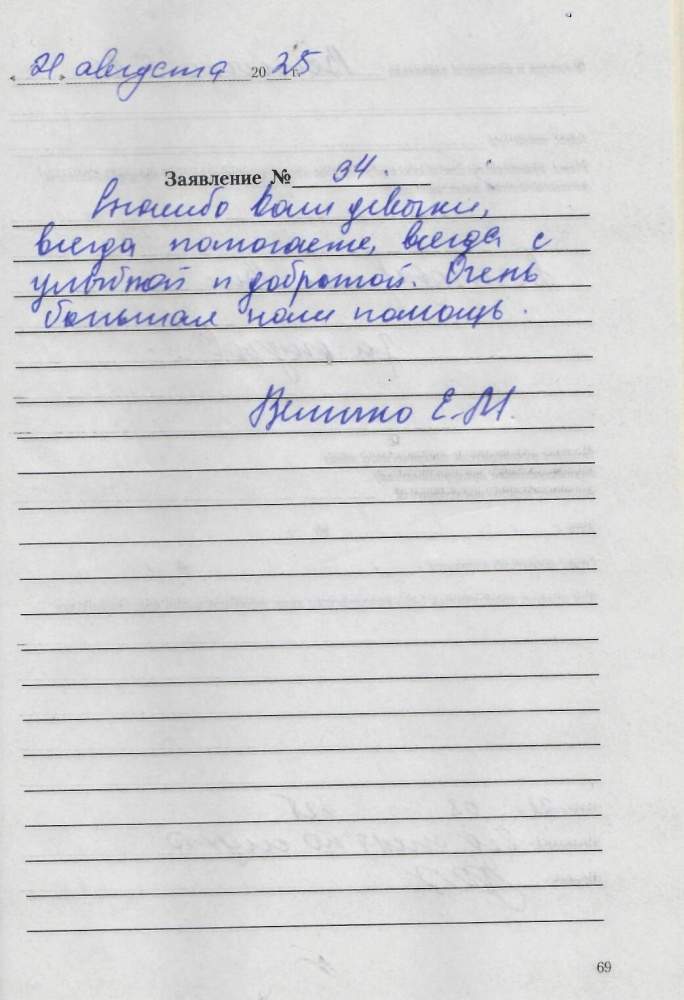 « 21 » августа 2025 г.
Заявление № 34.
Спасибо Вам девочки,
всегда помогаете, всегда с
улыбкой и добротой. Очень
большая нам помощь.
Величко Е.М.
69